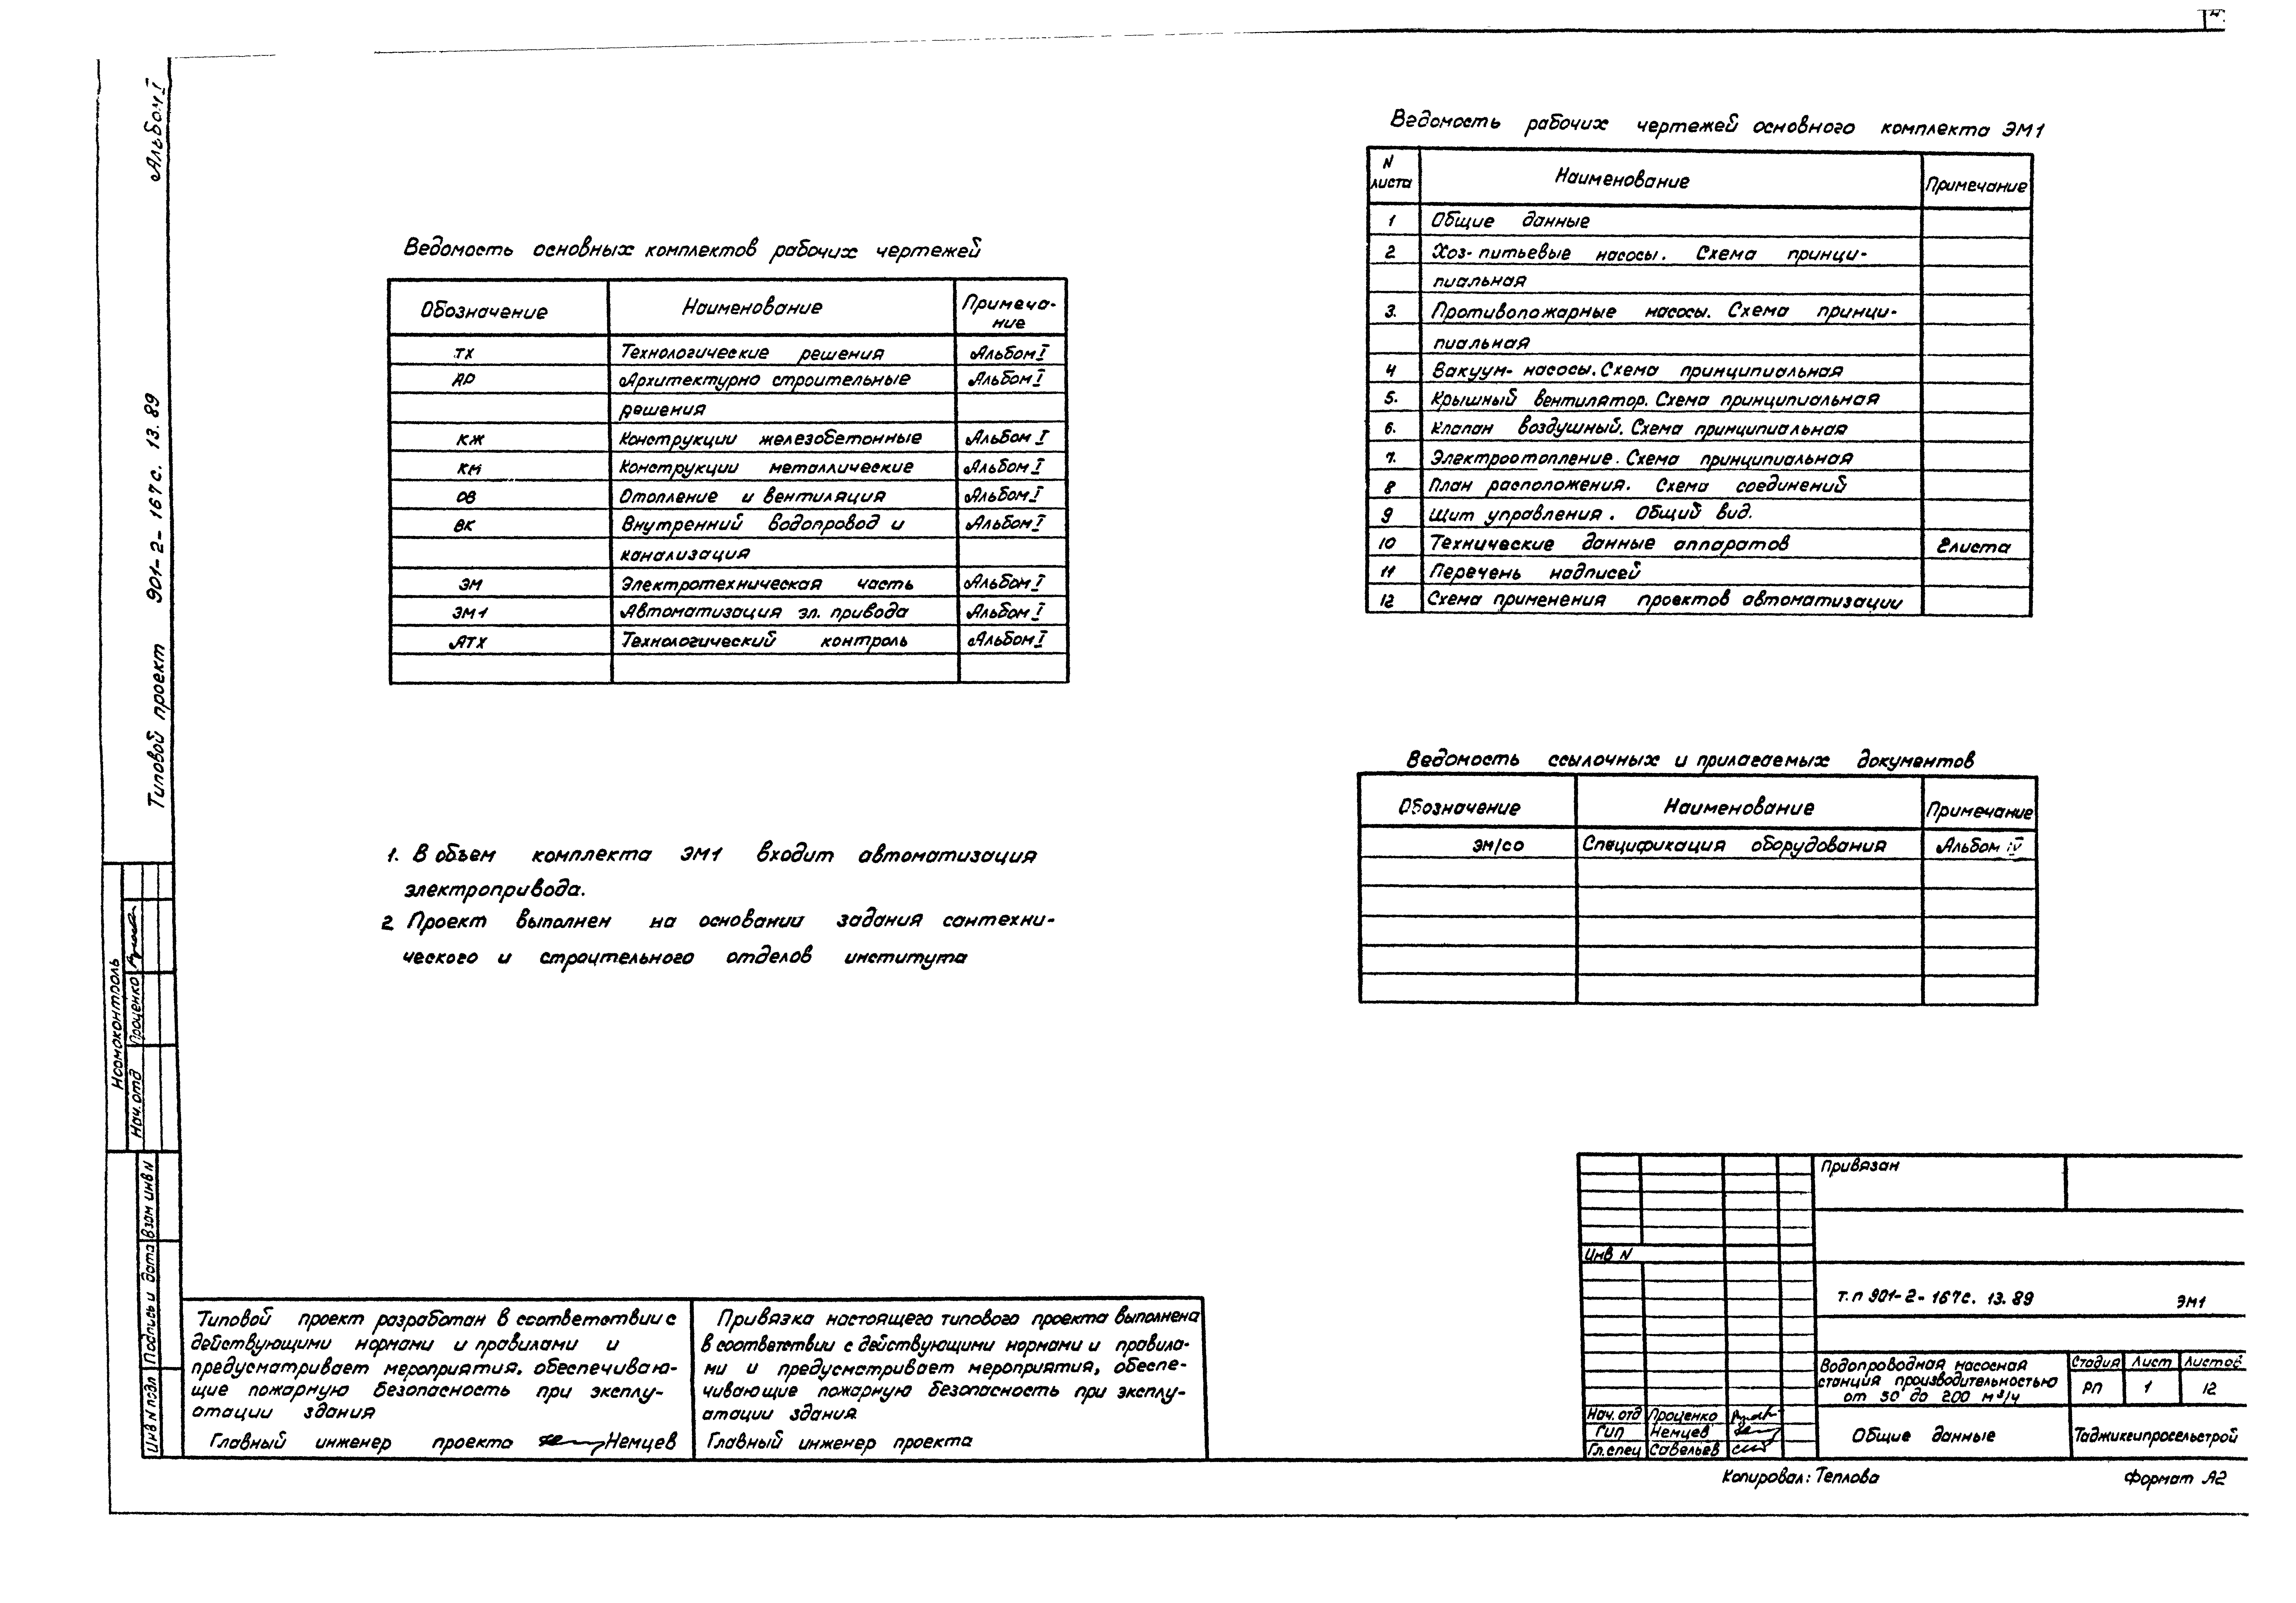 Альбом I
Типовой проект 901-2-167с. 13.89
Ведомость основных комплектов рабочих чертежей
Обозначение Наименование Примеча-
ние
ТХ Технологические решения Альбом I
АР Архитектурно строительные Альбом I
решения
КЖ Конструкции железобетонные Альбом I
КМ Конструкции металлические Альбом I
ОВ Отопление и вентиляция Альбом I
ВК Внутренний водопровод и Альбом I
канализация
ЭМ Электротехническая часть Альбом I
ЭМ1 Автоматизация эл. привода Альбом I
АТХ Технологический контроль Альбом I
1. В объем комплекта ЭМ1 входит автоматизация
электропривода.
2 Проект выполнен на основании задания сантехни-
ческого и строительного отделов института
Ведомость рабочих чертежей основного комплекта ЭМ1
N
листа Наименование Примечание
1 Общие данные
2 Хоз-питьевые насосы. Схема принци-
пиальная
3. Противопожарные насосы. Схема принци-
пиальная
4 Вакуум-насосы. Схема принципиальная
5. Крышный вентилятор. Схема принципиальная
6. Клапан воздушный. Схема принципиальная
7. Электроотопление. Схема принципиальная
8 План расположения. Схема соединений
9 Щит управления. Общий вид.
10 Технические данные аппаратов 2листа
11 Перечень надписей
12 Схема применения проектов автоматизации
Ведомость ссылочных и прилагаемых документов
Обозначение Наименование Примечание
ЭМ/СО Спецификация оборудования Альбом IV
Нормоконтроль
Нач. отд Проценко
Инв N подл Подпись и дата Взам инв N
Типовой проект разработан в соответствии с
действующими нормами и правилами и
предусматривает мероприятия, обеспечиваю-
щие пожарную безопасность при эксплу-
атации здания
Главный инженер проекта Немцев
Привязка настоящего типового проекта выполнена
в соответствии с действующими нормами и правила-
ми и предусматривает мероприятия, обеспе-
чивающие пожарную безопасность при эксплу-
атации здания
Главный инженер проекта
Привязан
Инв N
т.п 901-2-167с. 13.89 ЭМ1
Водопроводная насосная
станция производительностью
от 50 до 200 м³/ч
Стадия Лист Листов
РП 1 12
Нач. отд Проценко
Гип Немцев
Гл. спец Савельев
Общие данные
Таджикгипросельстрой
Копировал: Теплова Формат А2